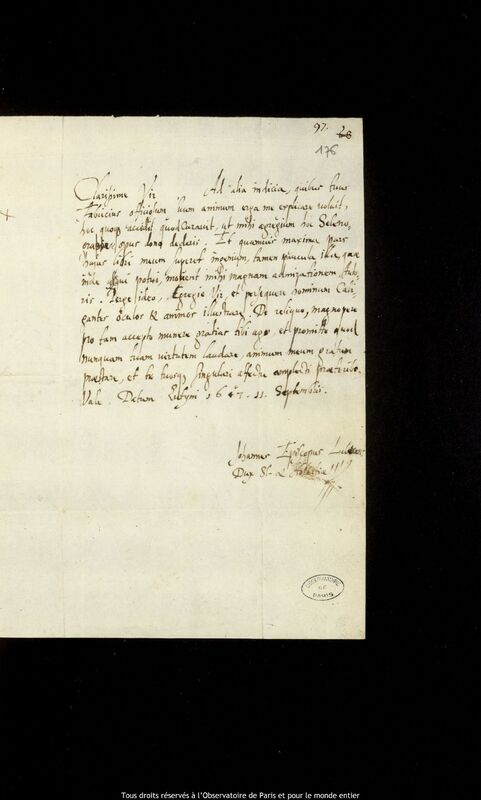 97. 28
176
Clarissime Vir Ad alia indicia, quibus tuus
Fabricius officiosum suum animum erga me explicare voluit,
hoc quoque accedit quod curavit, ut mihi egregium hoc Seleno,
graphiae opus dono dederis. Et quamvis maxima pars
hujus libri meum superet ingenium, tamen paucula illa, quae
inde assequi potui, moverunt mihi magnam admirationem studij
Perge ideo, Egregie Vir, et persequere hominum Cali,
gantes oculos & animos illustrare. De reliquo, magnopere
pro tam accepto munere gratias tibi ago, et promitto quod
nunquam tuam virtutem laudare, animum meum gratum
praestare, et te tuosque singulari affectu complecti praeteribo.
Vale. Datum Eutini 1647. 11. Septembris.
Johannes Episcopus
Dux Sl. & Holsatiae
OBSERVATOIRE
DE
PARIS
Tous droits réservés à l'Observatoire de Paris et pour le monde entier